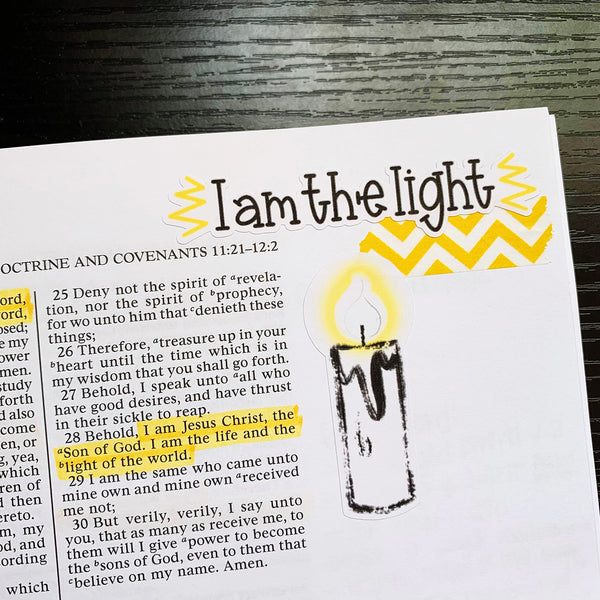 I am the light
OCTRINE AND COVENANTS 11:21–12:2
ord,
ord,
osed;
e my
ower
men.
study
forth
d also
come
en, or
g, yea,
which
ren of
d then
ereto.
m, my
od, and
ording
which
25 Deny not the spirit of ᵃrevela-
tion, nor the spirit of ᵇprophecy,
for wo unto him that ᶜdenieth these
things;
26 Therefore, ᵃtreasure up in your
ᵇheart until the time which is in
my wisdom that you shall go forth.
27 Behold, I speak unto ᵃall who
have good desires, and have thrust
in their sickle to reap.
28 Behold, I am Jesus Christ, the
ᵃSon of God. I am the life and the
ᵇlight of the world.
29 I am the same who came unto
mine own and mine own ᵃreceived
me not;
30 But verily, verily, I say unto
you, that as many as receive me, to
them will I give ᵃpower to become
the ᵇsons of God, even to them that
ᶜbelieve on my name. Amen.